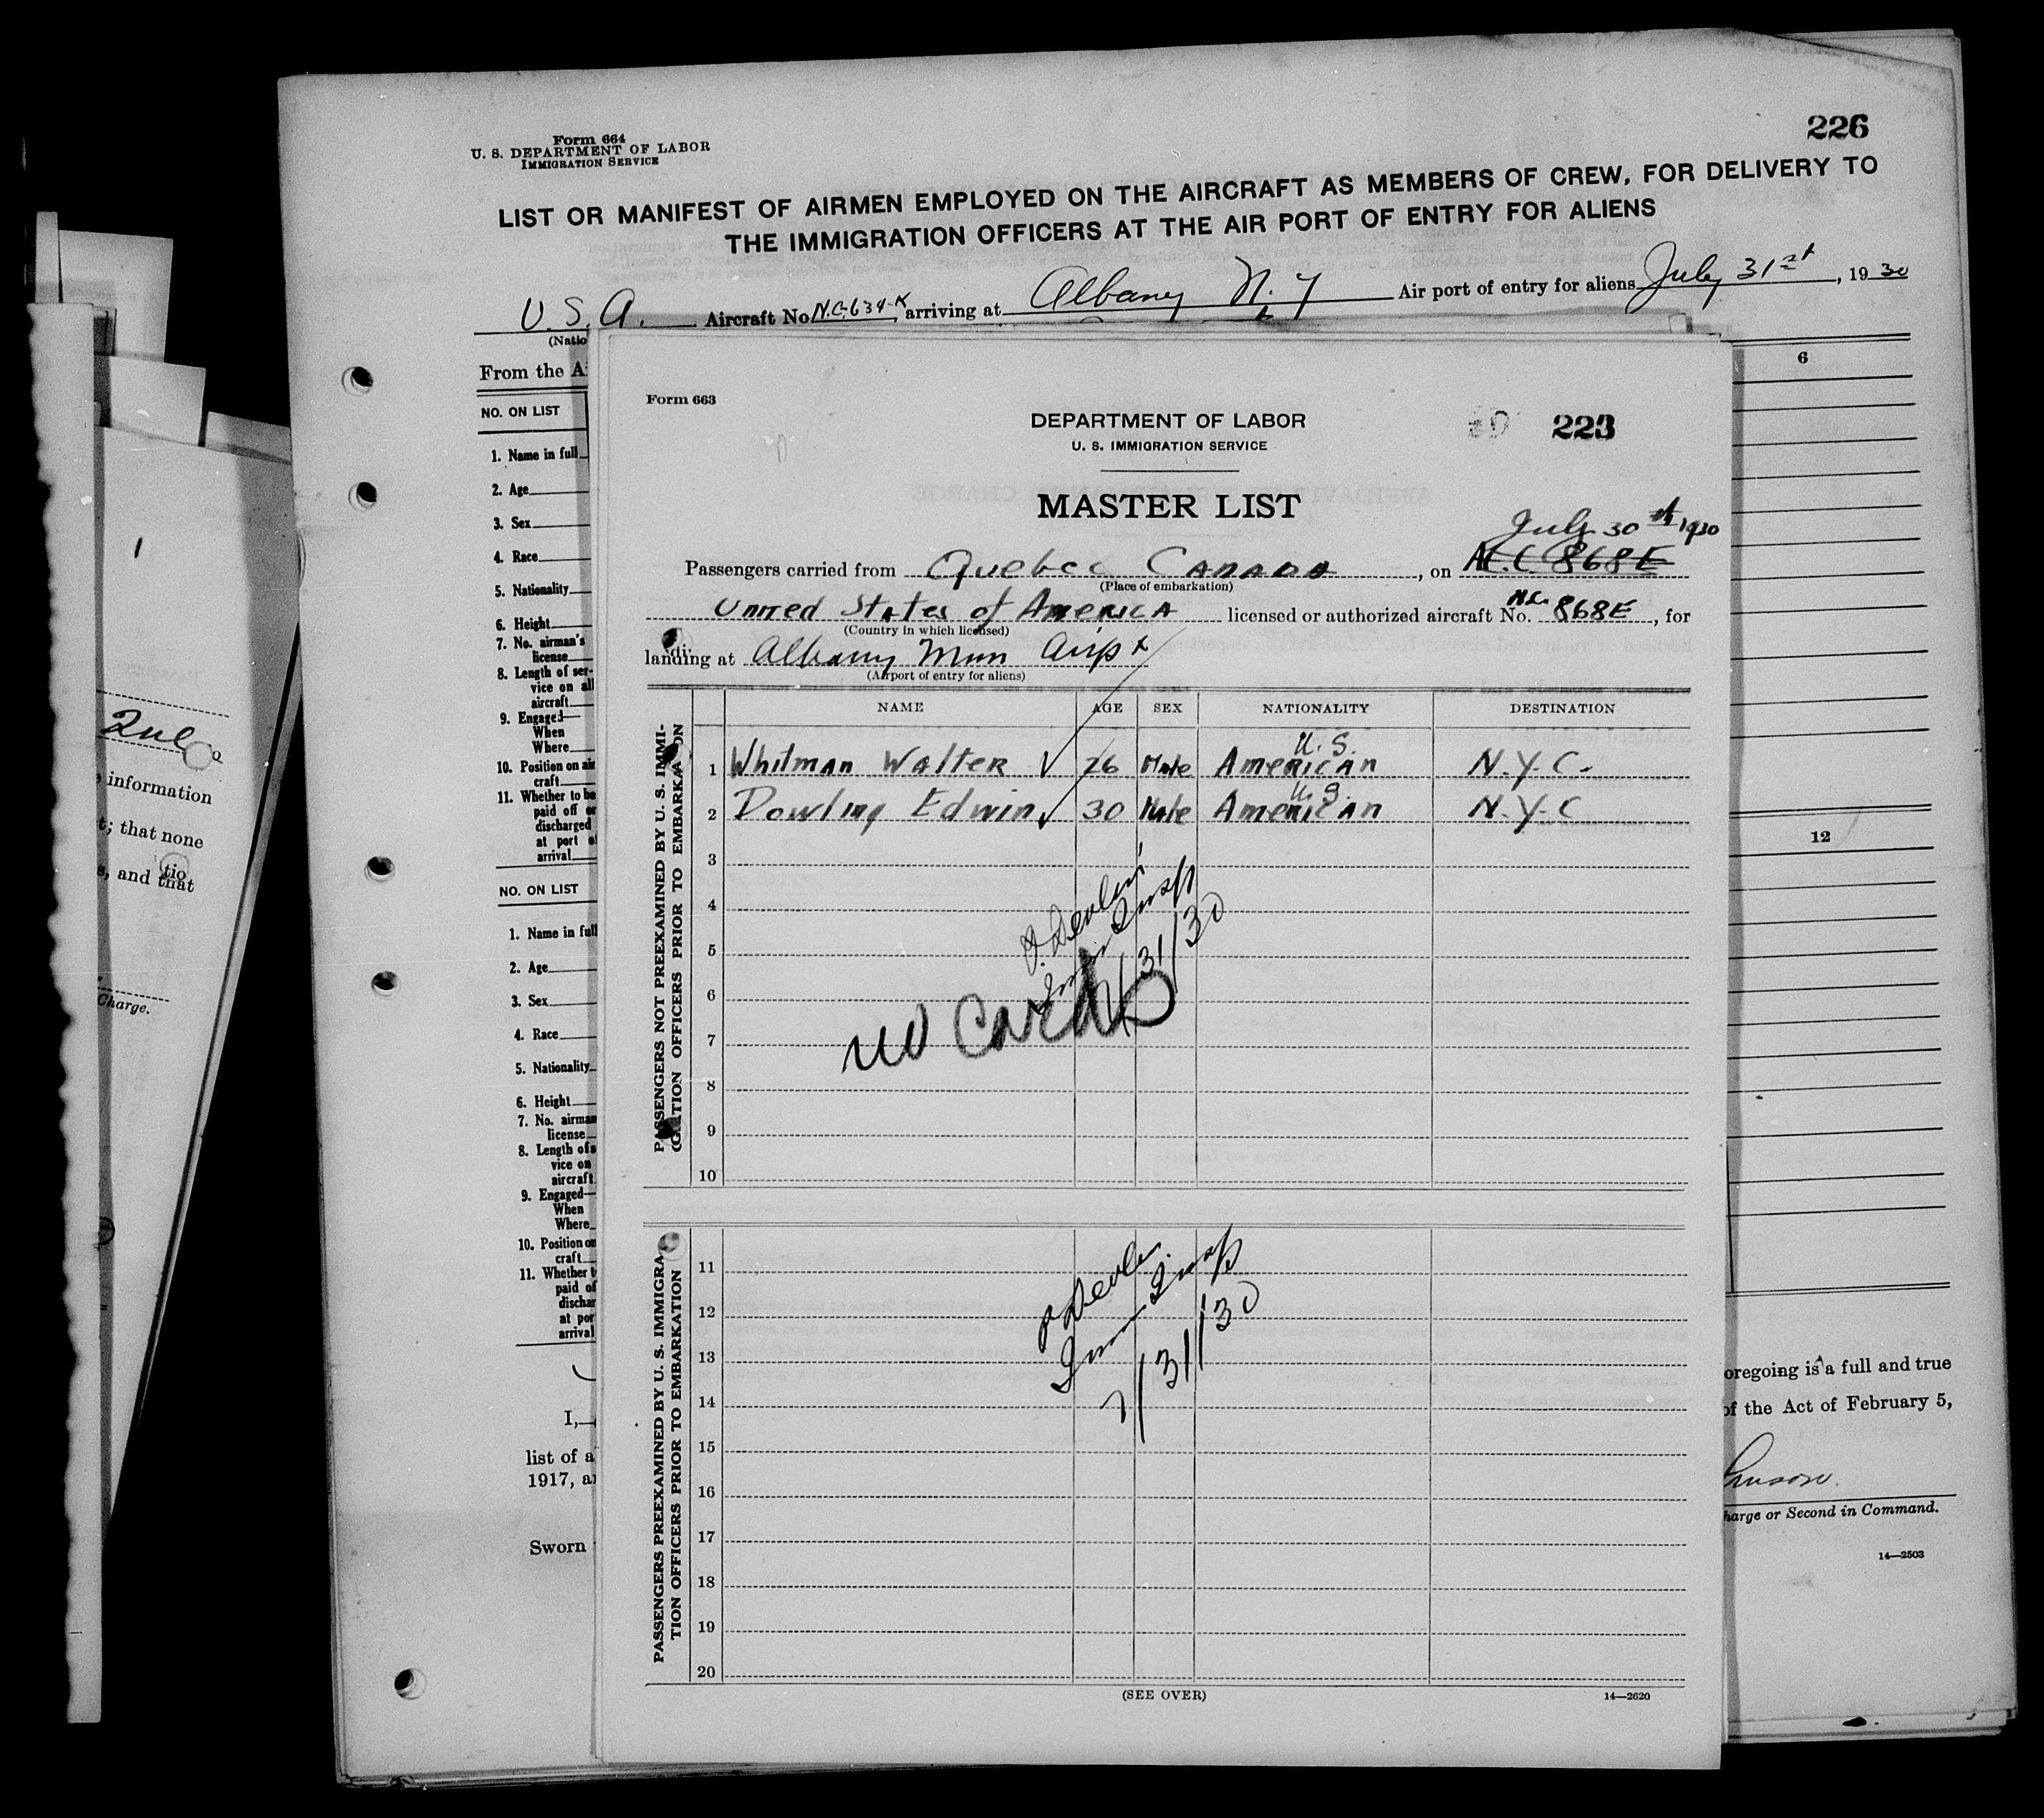 Form 664
U. S. DEPARTMENT OF LABOR
IMMIGRATION SERVICE
226
LIST OR MANIFEST OF AIRMEN EMPLOYED ON THE AIRCRAFT AS MEMBERS OF CREW, FOR DELIVERY TO
THE IMMIGRATION OFFICERS AT THE AIR PORT OF ENTRY FOR ALIENS
U.S.A. Aircraft No. N.C-634-K, arriving at Albany N.Y Air port of entry for aliens July 31st, 1930
(Natio
From the A
6
NO. ON LIST
1. Name in full
2. Age
3. Sex
4. Race
5. Nationality
6. Height
7. No. airman's
license
8. Length of ser-
vice on all
aircraft
9. Engaged—
When
Where
10. Position on air
craft
11. Whether to be
paid off or
discharged
at port of
arrival
12
NO. ON LIST
1. Name in full
2. Age
3. Sex
4. Race
5. Nationality
6. Height
7. No. airman
license
8. Length of s
vice on
aircraft
9. Engaged—
When
Where
10. Position on
craft
11. Whether t
paid of
dischar
at por
arrival
I,
list of a
1917, a
Sworn
oregoing is a full and true
of the Act of February 5,
harge or Second in Command.
14—2503
1
information
t; that none
s, and that
tio
Charge.
Form 663
DEPARTMENT OF LABOR
223
U. S. IMMIGRATION SERVICE
MASTER LIST
July 30th 1930
Passengers carried from Quebec Canada, on N.C 868E
(Place of embarkation)
United States of America licensed or authorized aircraft No. N.C. 868E, for
(Country in which licensed)
landing at Albany Mun Airpt
(Airport of entry for aliens)
NAME AGE SEX NATIONALITY DESTINATION
PASSENGERS NOT PREEXAMINED BY U. S. IMMI-
GRATION OFFICERS PRIOR TO EMBARKATION
U.S.
1 Whitman Walter ✓ 26 Male American N.Y.C.
U.S.
2 Dowling Edwin ✓ 30 Male American N.Y.C
3
4
5
6
7
8
9
10
J. Devlin
Imm Insp
7/31/30
no cards
PASSENGERS PREEXAMINED BY U. S. IMMIGRA-
TION OFFICERS PRIOR TO EMBARKATION
11
12
13
14
15
16
17
18
19
20
J Devlin
Imm Insp
7/31/30
(SEE OVER)
14—2620